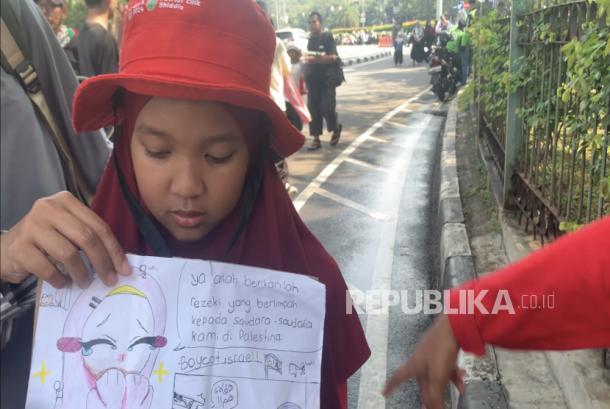 Shiddiq
ya allah berikanlah
rezeki yang berlimpah
kepada saudara-saudara
kami di Palestina.
Boycot israel!!
REPUBLIKA.co.id